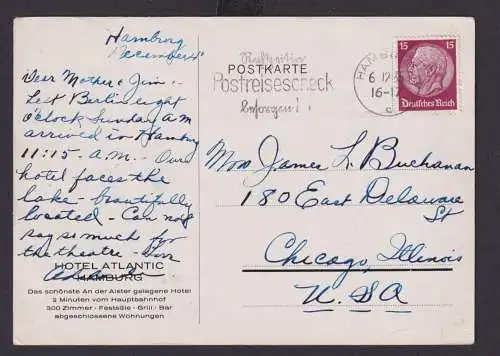 Hamburg
December 4
Dear Mother & Jim:-
Left Berlin eight
o'clock Sunday A.M
arrived in Hamburg
11:15 - A.M. - Our
hotel faces the
lake - beautifully
located - Can not
say so much for
the theatre -
HOTEL ATLANTIC
HAMBURG
Das schönste An der Alster gelegene Hotel
2 Minuten vom Hauptbahnhof
300 Zimmer · Festsäle · Grill · Bar
abgeschlossene Wohnungen
POSTKARTE
Rechtzeitig
Postreisescheck
besorgen!
HAMB
6 12
16-17
c
15 15
Deutsches Reich
Mrs James L Buchanan
180 East Delaware
St
Chicago, Illinois
U.S.A